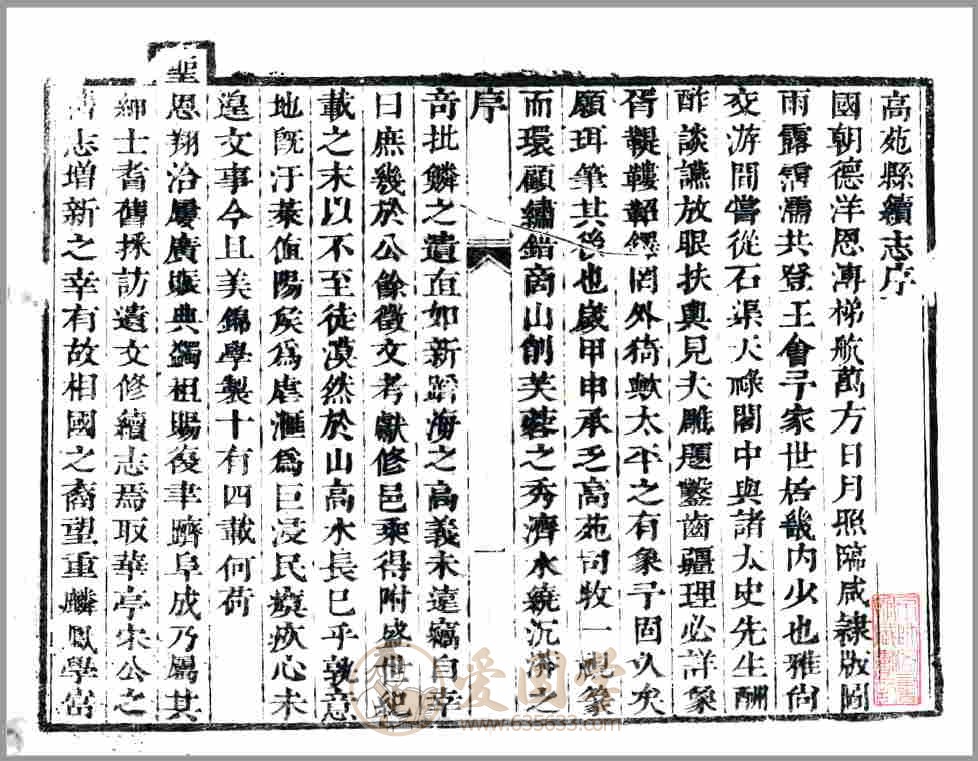 高苑縣續志序
國朝德洋恩溥梯航萬方日月照臨咸隷版圖
雨露霑濡共登王會予家世居畿内少也雅尚
交游間嘗從石渠天祿閣中與諸太史先生酬
酢談讌放眼扶輿見夫雕題鑿齒疆理必詳象
胥鞮鞻鞀鐸罔外猗歟太平之有象予固久矣
願珥筆其後也歲甲申承乏高苑司牧一視篆
而環顧繡錯商山削芙蓉之秀濟水繞沉漭之
序
一
奇批鱗之遺直如新蹈海之高義未遠竊自幸
曰庶幾於公餘徵文考獻修邑乘得附盛世紀
載之末以不至徒漠然於山高水長已乎孰意
地旣汙萊値陽侯爲虐滙爲巨浸民瘼疚心未
遑文事今且美錦學製十有四載何荷
聖
恩翔洽屢廣賑典蠲租賜復聿躋阜成乃屬其
紳士耆舊採訪遺文修續志焉取華亭宋公之
舊志增新之幸有故相國之裔望重麟鳳學富
愛国学
www.635833.com